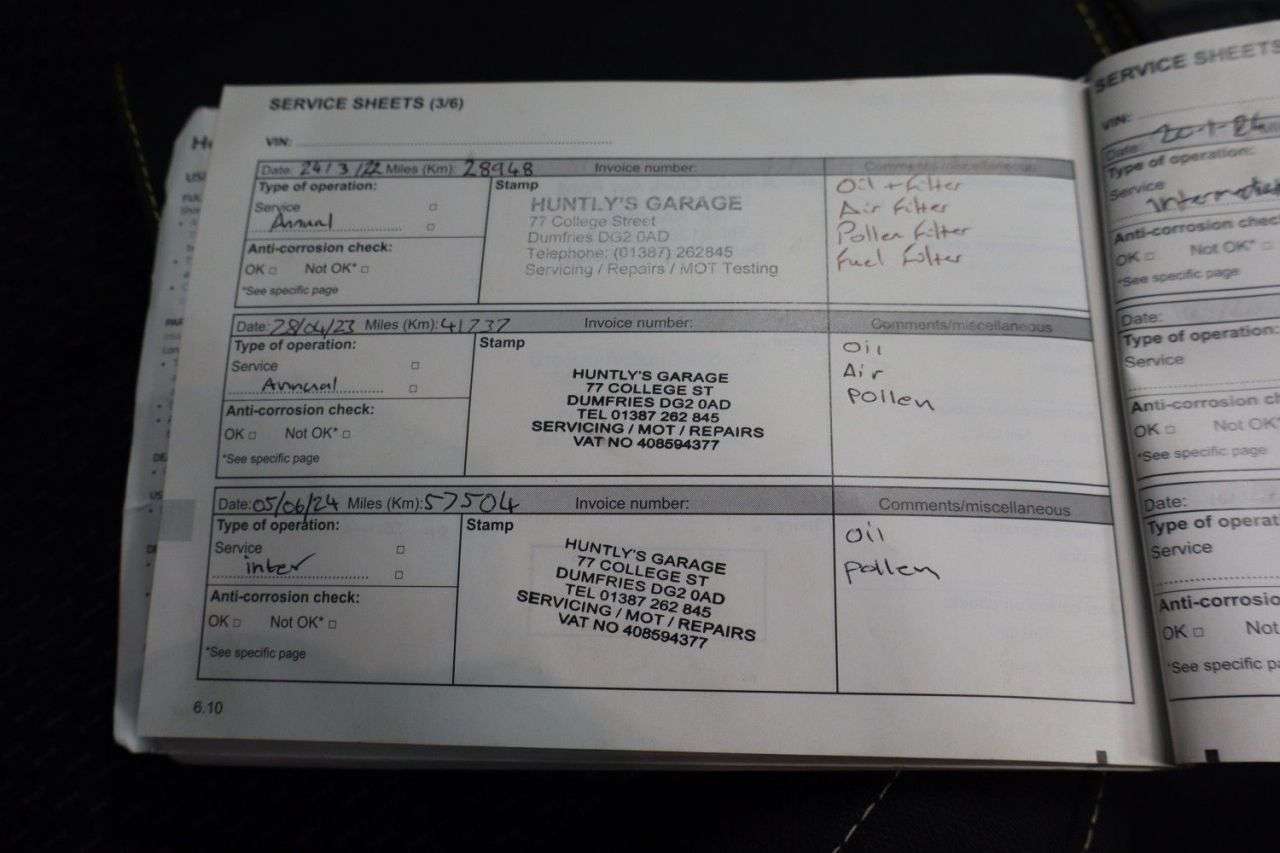 SERVICE SHEETS (3/6)
VIN:
Date: 24/3/22 Miles (Km): 28948 Invoice number: Comments/miscellaneous
Type of operation:
Service
Annual
Anti-corrosion check:
OK □ Not OK* □
*See specific page
Stamp
HUNTLY'S GARAGE
77 College Street
Dumfries DG2 0AD
Telephone: (01387) 262845
Servicing / Repairs / MOT Testing
Oil + filter
Air filter
Pollen filter
Fuel filter
Date: 28/04/23 Miles (Km): 41737 Invoice number: Comments/miscellaneous
Type of operation:
Service
Annual
Anti-corrosion check:
OK □ Not OK* □
*See specific page
Stamp
HUNTLY'S GARAGE
77 COLLEGE ST
DUMFRIES DG2 0AD
TEL 01387 262 845
SERVICING / MOT / REPAIRS
VAT NO 408594377
Oil
Air
Pollen
Date: 05/06/24 Miles (Km): 57504 Invoice number: Comments/miscellaneous
Type of operation:
Service
inter
Anti-corrosion check:
OK □ Not OK* □
*See specific page
Stamp
HUNTLY'S GARAGE
77 COLLEGE ST
DUMFRIES DG2 0AD
TEL 01387 262 845
SERVICING / MOT / REPAIRS
VAT NO 408594377
Oil
Pollen
6.10
SERVICE SHEETS
VIN:
Date:
Type of operation:
Service
Anti-corrosion check
OK □ Not OK* □
*See specific page
Date:
Type of operation:
Service
Anti-corrosion ch
OK □ Not OK*
*See specific page
Date:
Type of operat
Service
Anti-corrosio
OK □ Not
*See specific pa